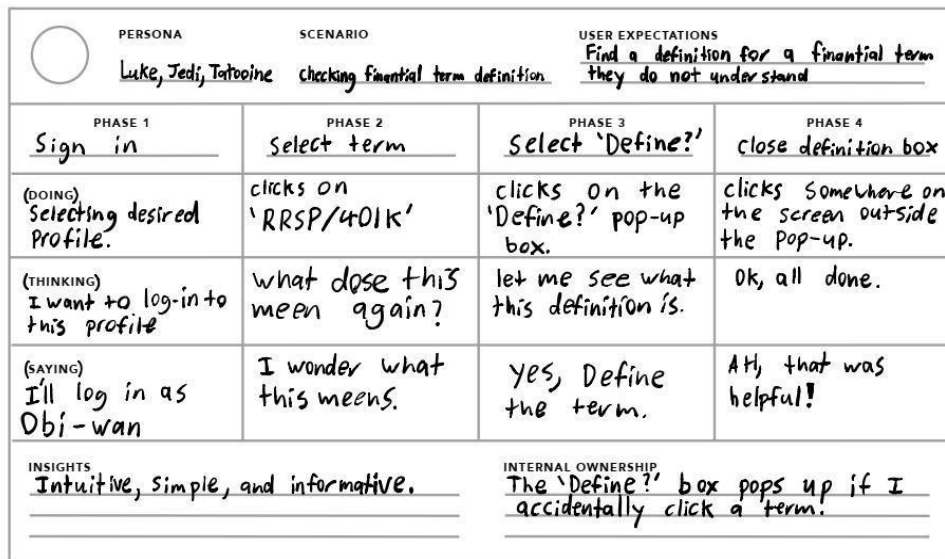 PERSONA
Luke, Jedi, Tatooine
SCENARIO
Checking finantial term definition
USER EXPECTATIONS
Find a definition for a finantial term
they do not understand
PHASE 1
Sign in
PHASE 2
Select term
PHASE 3
Select 'Define?'
PHASE 4
close definition box
(DOING)
Selecting desired
Profile.
clicks on
'RRSP/401K'
clicks on the
'Define?' pop-up
box.
clicks Somewhere on
the screen outside
the Pop-up.
(THINKING)
I want to log-in to
this profile
what dose this
meen again?
let me see what
this definition is.
Ok, all done.
(SAYING)
I'll log in as
Obi-wan
I wonder what
this meens.
Yes, Define
the term.
AH, that was
helpful!
INSIGHTS
Intuitive, simple, and informative.
INTERNAL OWNERSHIP
The 'Define?' box pops up if I
accidentally click a term!